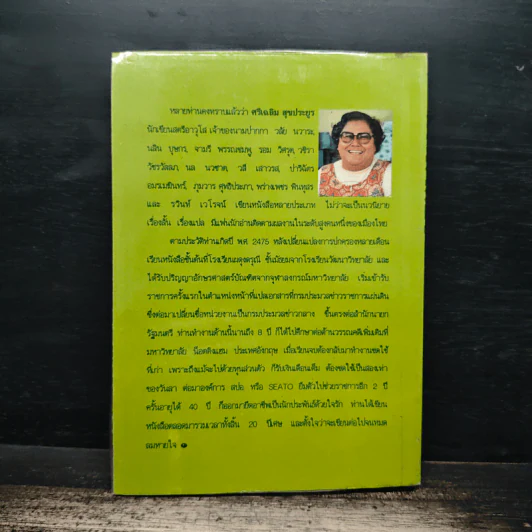 หลายท่านคงทราบแล้วว่า ศรีเฉลิม สุขประยูร
นักเขียนสตรีอาวุโส เจ้าของนามปากกา วลัย นวาระ,
นลิน บุษกร, จามรี พรรณชมพู, รอม วิศรุต, วชิรา
วัชรวัลลภ, นล นวชาต, วสี เสาวรส, ปาริฉัตร
อมรเมธินทร์, ภุมวาร ศุทธิประภา, พร่างเพชร พินทุสร
และ รวินท์ เวโรจน์ เขียนหนังสือหลายประเภท ไม่ว่าจะเป็นนวนิยาย
เรื่องสั้น เรื่องแปล มีแฟนนักอ่านติดตามผลงานในระดับสูงคนหนึ่งของเมืองไทย
ตามประวัติท่านเกิดปี พ.ศ. 2475 หลังเปลี่ยนแปลงการปกครองหลายเดือน
เรียนหนังสือชั้นต้นที่โรงเรียนผดุงดรุณี ชั้นมัธยมจากโรงเรียนวัฒนาวิทยาลัย และ
ได้รับปริญญาอักษรศาสตร์บัณฑิตจากจุฬาลงกรณ์มหาวิทยาลัย เริ่มเข้ารับ
ราชการครั้งแรกในตำแหน่งหน้าที่แปลเอกสารที่กรมประมวลข่าวราชการแผ่นดิน
ซึ่งต่อมาเปลี่ยนชื่อหน่วยงานเป็นกรมประมวลข่าวกลาง ขึ้นตรงต่อสำนักนายก
รัฐมนตรี ท่านทำงานด้านนี้นานถึง 8 ปี ก็ได้ไปศึกษาต่อด้านวรรณคดีเพิ่มเติมที่
มหาวิทยาลัย น็อตติงแฮม ประเทศอังกฤษ เมื่อเรียนจบต้องกลับมาทำงานชดใช้
ที่เก่า เพราะถึงแม้จะไปด้วยทุนส่วนตัว ก็รับเงินเดือนเต็ม ต้องชดใช้เป็นสองเท่า
ของวันลา ต่อมาองค์การ สปอ. หรือ SEATO ยืมตัวไปช่วยราชการอีก 2 ปี
ครั้นอายุได้ 40 ปี ก็ออกมายึดอาชีพเป็นนักประพันธ์ด้วยใจรัก ท่านได้เขียน
หนังสือตลอดมารวมเวลาทั้งสิ้น 20 ปีเศษ และตั้งใจว่าจะเขียนต่อไปจนหมด
ลมหายใจ